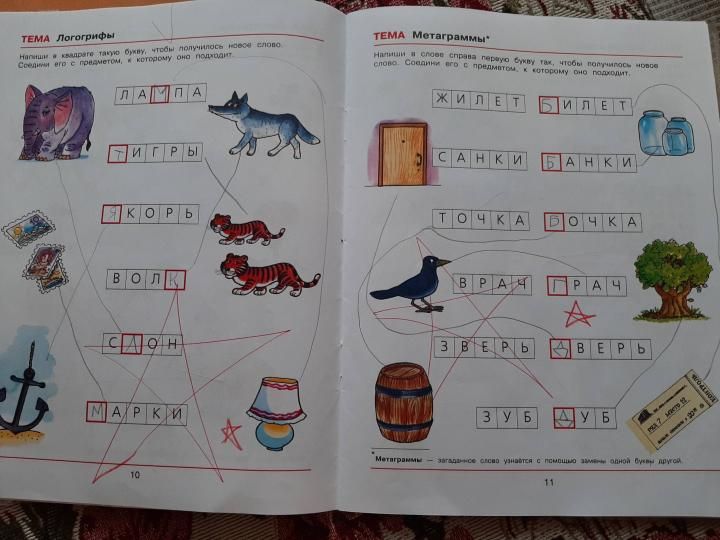 ТЕМА Логогрифы
Напиши в квадрате такую букву, чтобы получилось новое слово.
Соедини его с предметом, к которому оно подходит.
ЛАМПА
ТИГРЫ
ЯКОРЬ
ВОЛК
СЛОН
МАРКИ
10
ТЕМА Метаграммы*
Напиши в слове справа первую букву так, чтобы получилось новое
слово. Соедини его с предметом, к которому оно подходит.
ЖИЛЕТ БИЛЕТ
САНКИ БАНКИ
ТОЧКА БОЧКА
ВРАЧ ГРАЧ
ЗВЕРЬ ДВЕРЬ
ЗУБ ДУБ
РЯД 7 МЕСТО 12
*
Метаграммы — загаданное слово узнаётся с помощью замены одной буквы другой.
11